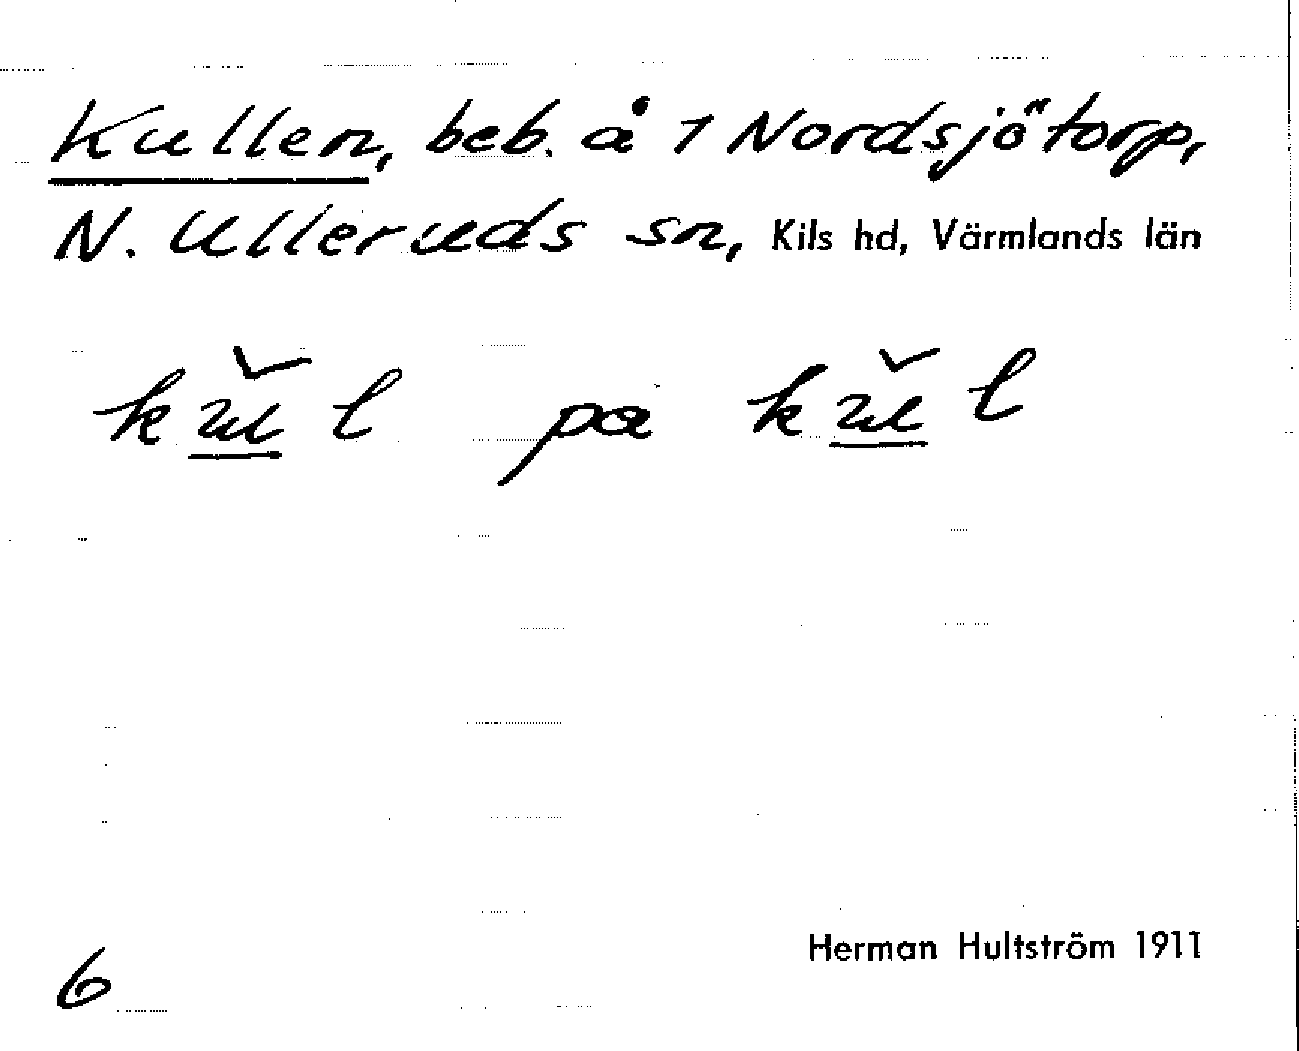 Kullen, beb. å 1 Nordsjötorp,
N. Ulleruds sn, Kils hd, Värmlands län
kŭl på kŭl
6
Herman Hultström 1911